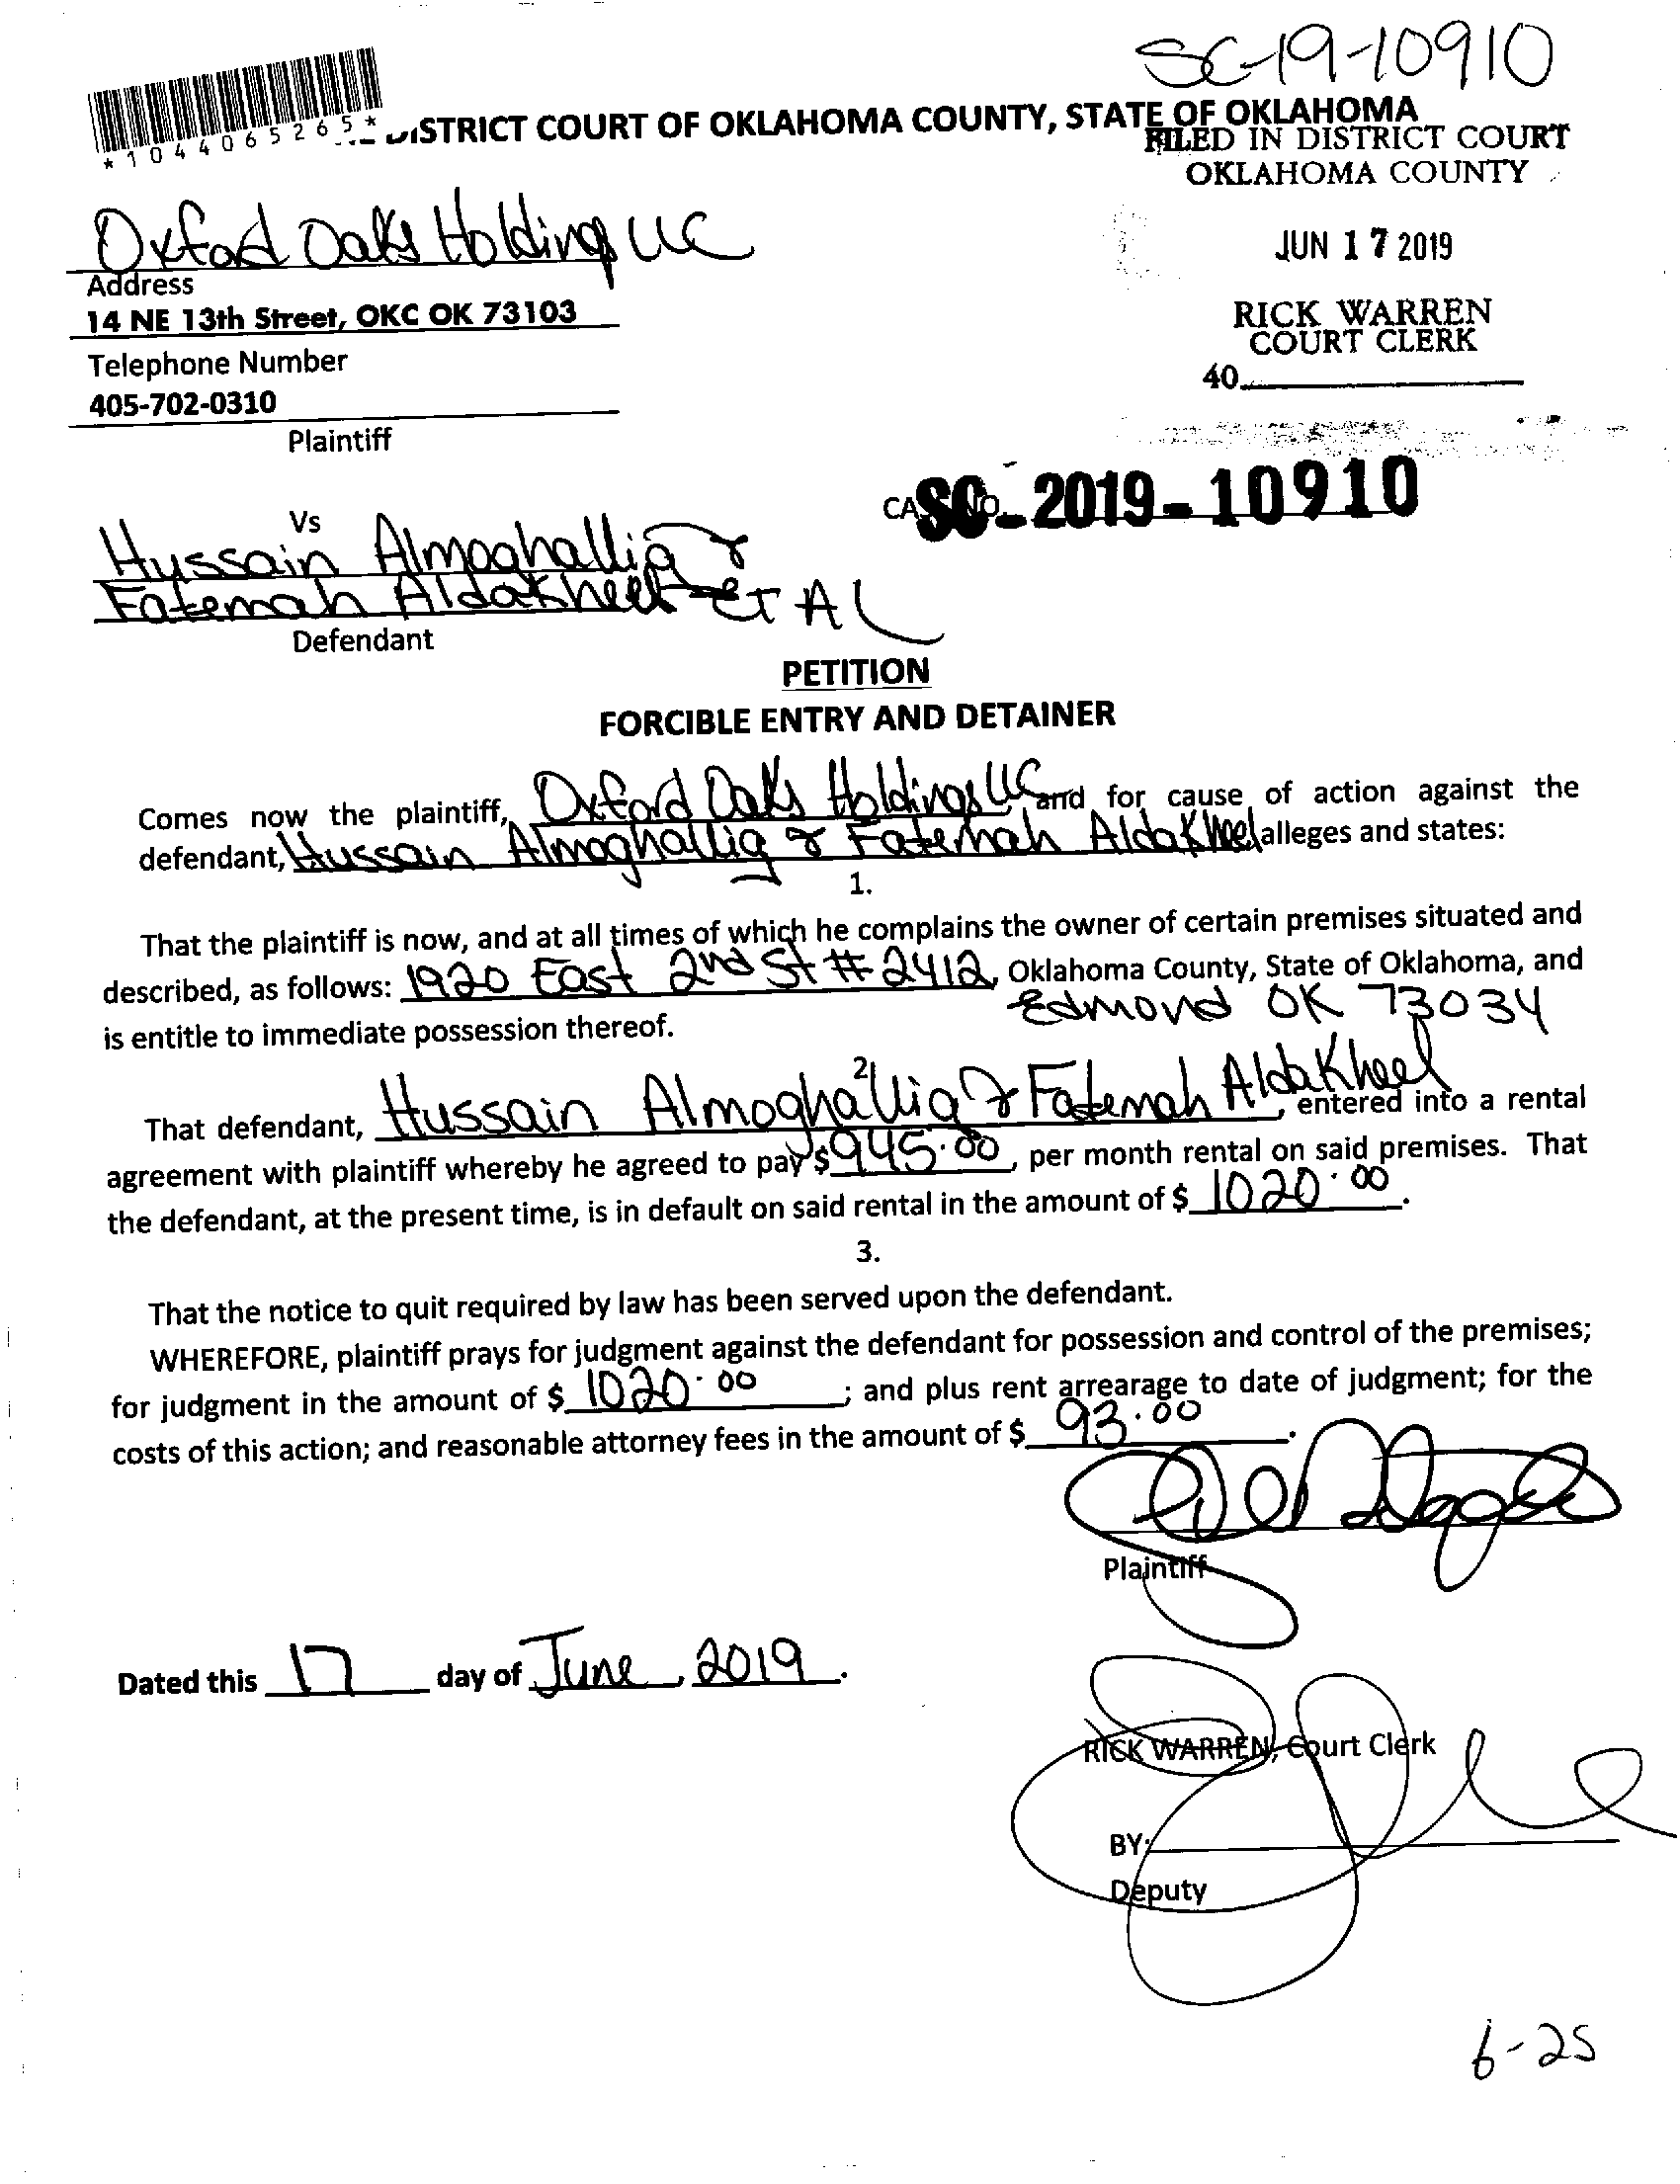 SC-19-10910
*1044065265*
DISTRICT COURT OF OKLAHOMA COUNTY, STATE OF OKLAHOMA
FILED IN DISTRICT COURT
OKLAHOMA COUNTY
Oxford Oaks Holdings LLC
JUN 17 2019
Address
14 NE 13th Street, OKC OK 73103
RICK WARREN
COURT CLERK
Telephone Number
40
405-702-0310
Plaintiff
SC-2019-10910
Vs
Hussain Almoghallig &
Fatemah Aldakheel ET AL
Defendant
PETITION
FORCIBLE ENTRY AND DETAINER
Comes now the plaintiff, Oxford Oaks Holdings LLC and for cause of action against the
defendant, Hussain Almoghallig & Fatemah Aldakheel alleges and states:
1.
That the plaintiff is now, and at all times of which he complains the owner of certain premises situated and
described, as follows: 1920 East 2nd St # 2412, Oklahoma County, State of Oklahoma, and
Edmond OK 73034
is entitle to immediate possession thereof.
2.
That defendant, Hussain Almoghallig & Fatemah Aldakheel, entered into a rental
agreement with plaintiff whereby he agreed to pay $ 945.00, per month rental on said premises. That
the defendant, at the present time, is in default on said rental in the amount of $ 1020.00.
3.
That the notice to quit required by law has been served upon the defendant.
WHEREFORE, plaintiff prays for judgment against the defendant for possession and control of the premises;
for judgment in the amount of $ 1020.00; and plus rent arrearage to date of judgment; for the
costs of this action; and reasonable attorney fees in the amount of $ 93.00.
Plaintiff
Dated this 17 day of June, 2019.
RICK WARREN, Court Clerk
BY:
Deputy
6-25